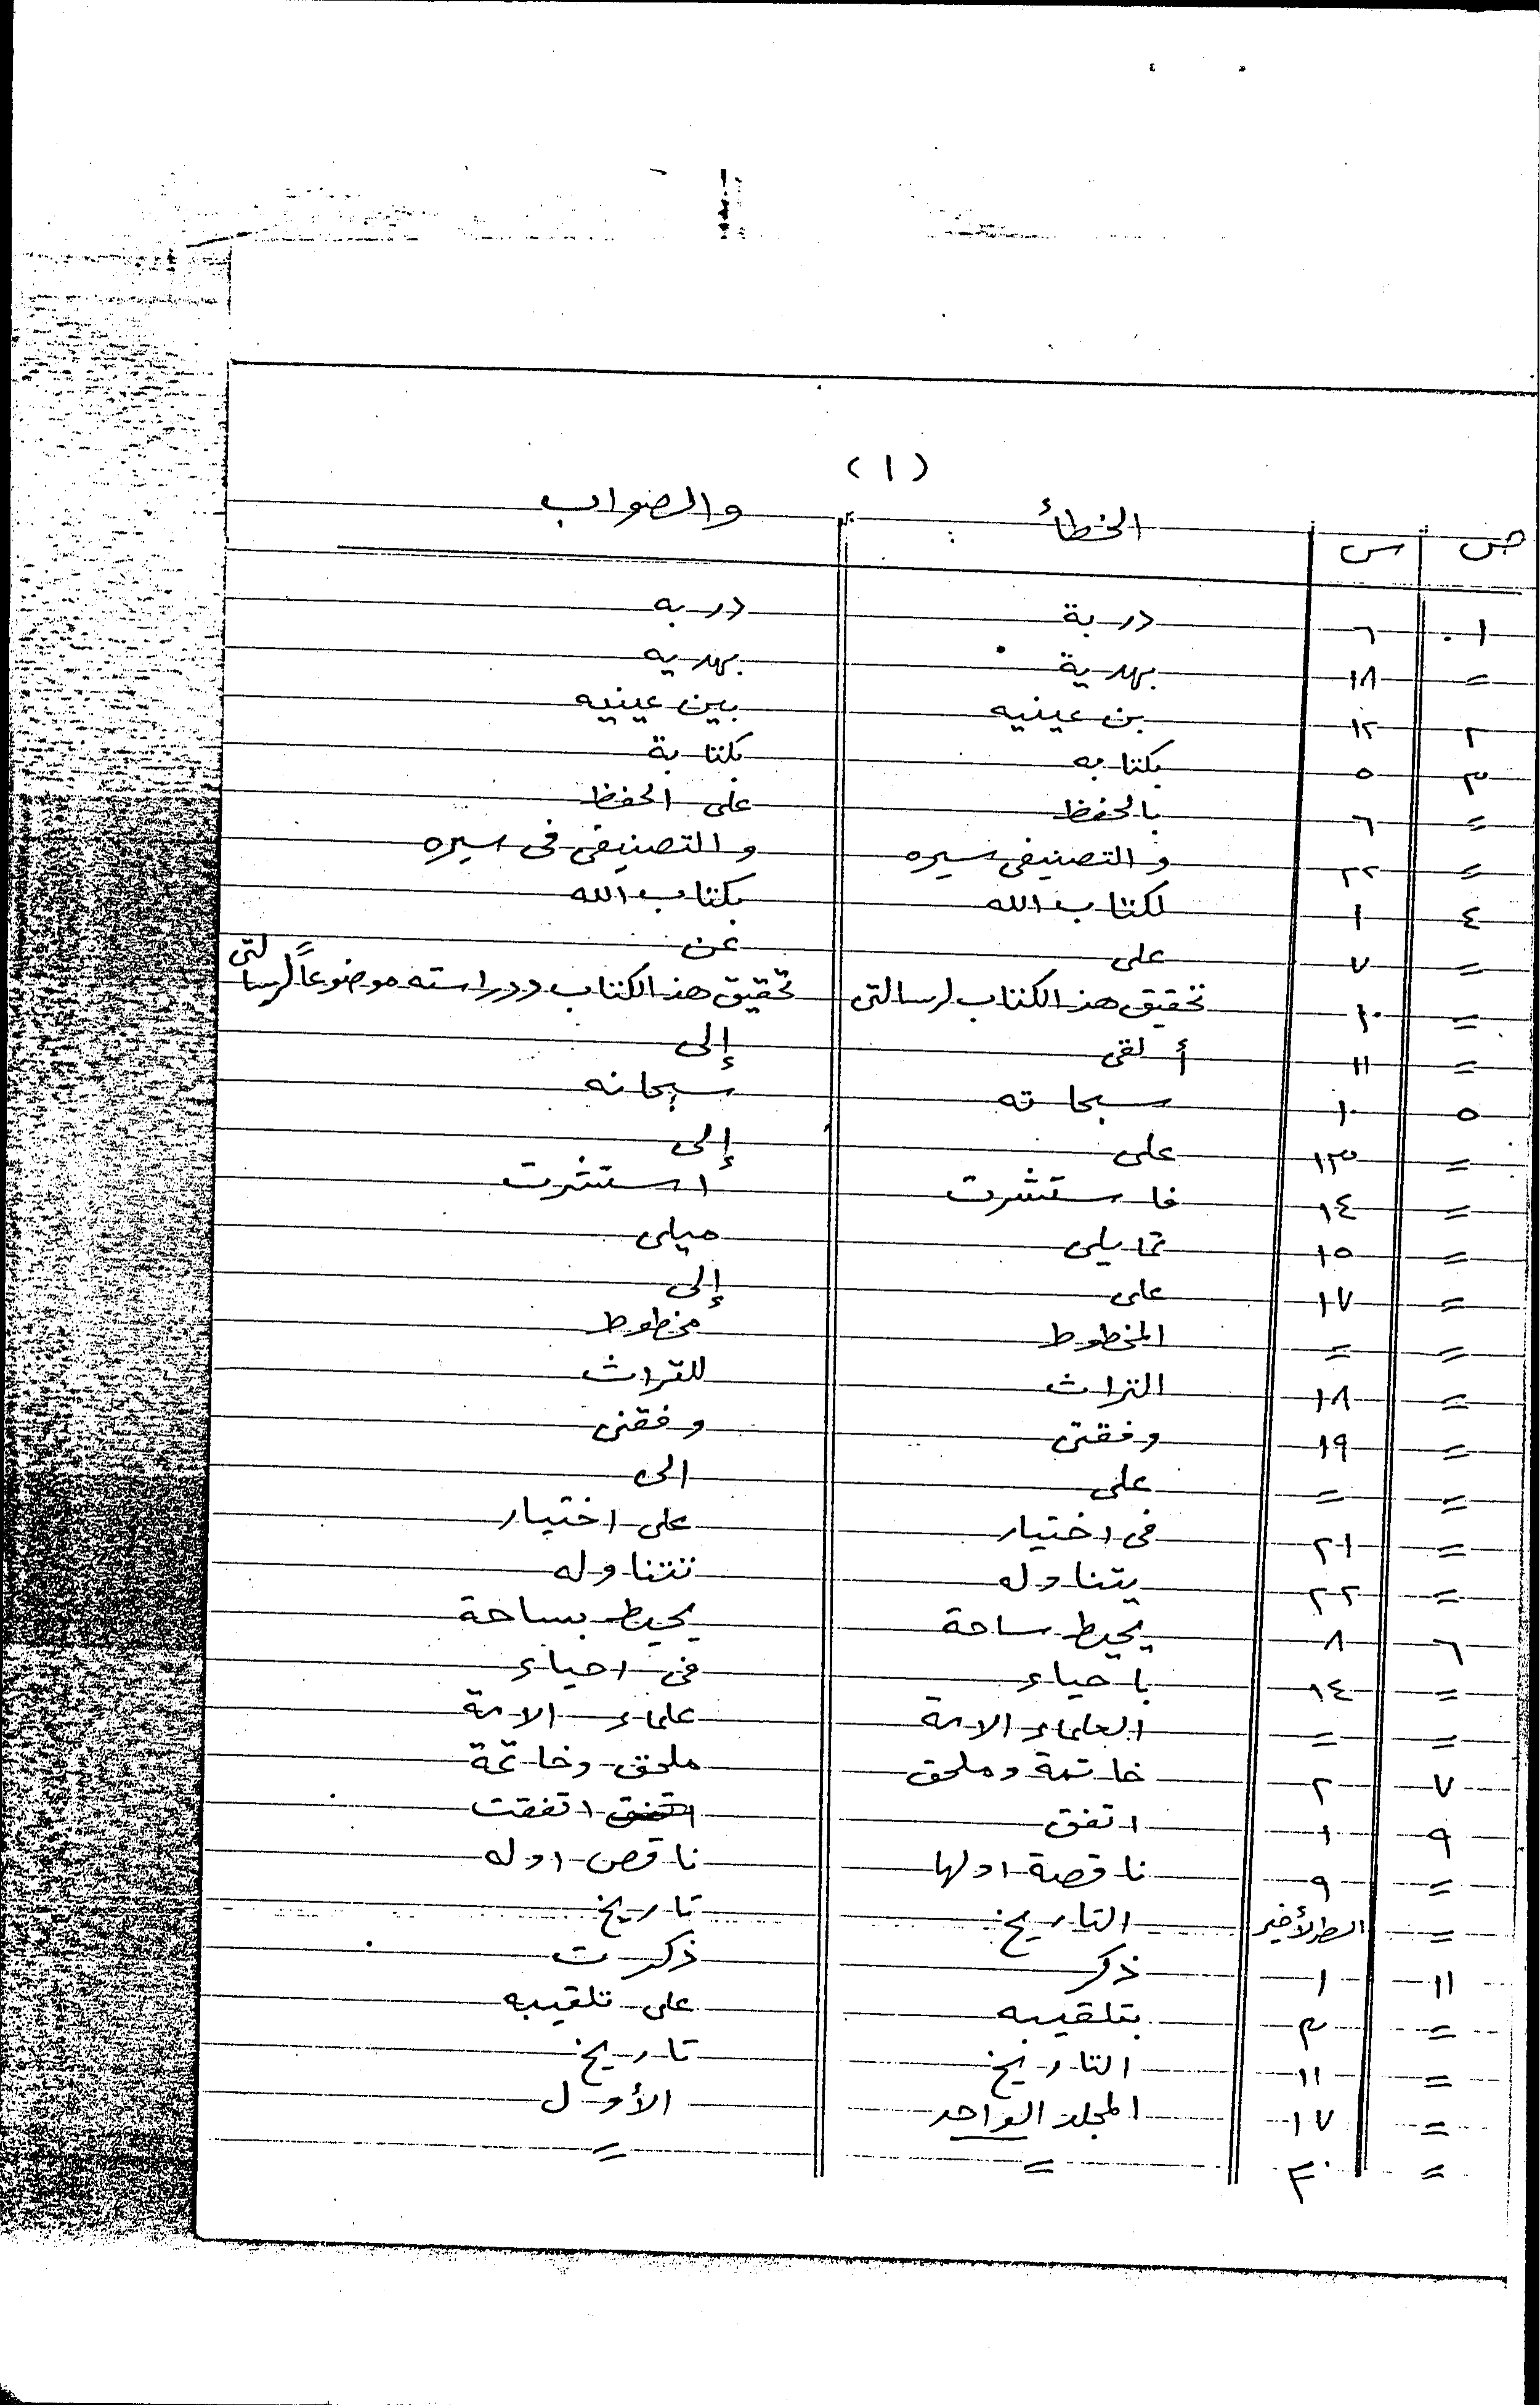 (١)
ص س الخطأ والصواب
١ ٦ دربة دربه
= ١٨ بهدية بهديه
٢ ١٢ بن عينيه بين عينيه
٣ ٥ بكتابه بكتابة
= ٦ بالحفظ على الحفظ
= ٢٢ والتصنيفى سيره والتصنيفى فى سيره
٤ ١ لكتاب الله بكتاب الله
= ٧ على عن
= ١٠ تحقيق هذ الكتاب لرسالتى تحقيق هذ الكتاب ودراسته موضوعاً لرسالتى
= ١١ ألقى إلى
٥ ١٠ سبحاته سبحانه
= ١٣ على إلى
= ١٤ فاستشرت استشرت
= ١٥ تمايلى ميلى
= ١٧ على إلى
= = المخطوط مخطوط
= ١٨ التراث للتراث
= ١٩ وفقتى وفقنى
= = على الى
= ٢١ فى اختيار على اختيار
= ٢٢ يتناوله تتناوله
٦ ٨ يحيط ساحة يحيط بساحة
= ١٤ باحياء فى احياء
= = العلماء الامة علماء الامة
٧ ٢ خاتمة وملحق ملحق وخاتمة
٩ ١ اتفق اتفقت
= ٩ ناقصة اولها ناقص اوله
= السطر الأخير التاريخ تاريخ
١١ ١ ذكر ذكرت
= ٣ بتلقيبه على تلقيبه
= ١١ التاريخ تاريخ
= ١٧ المجلد الواحد الأول
= ٢٠ = =